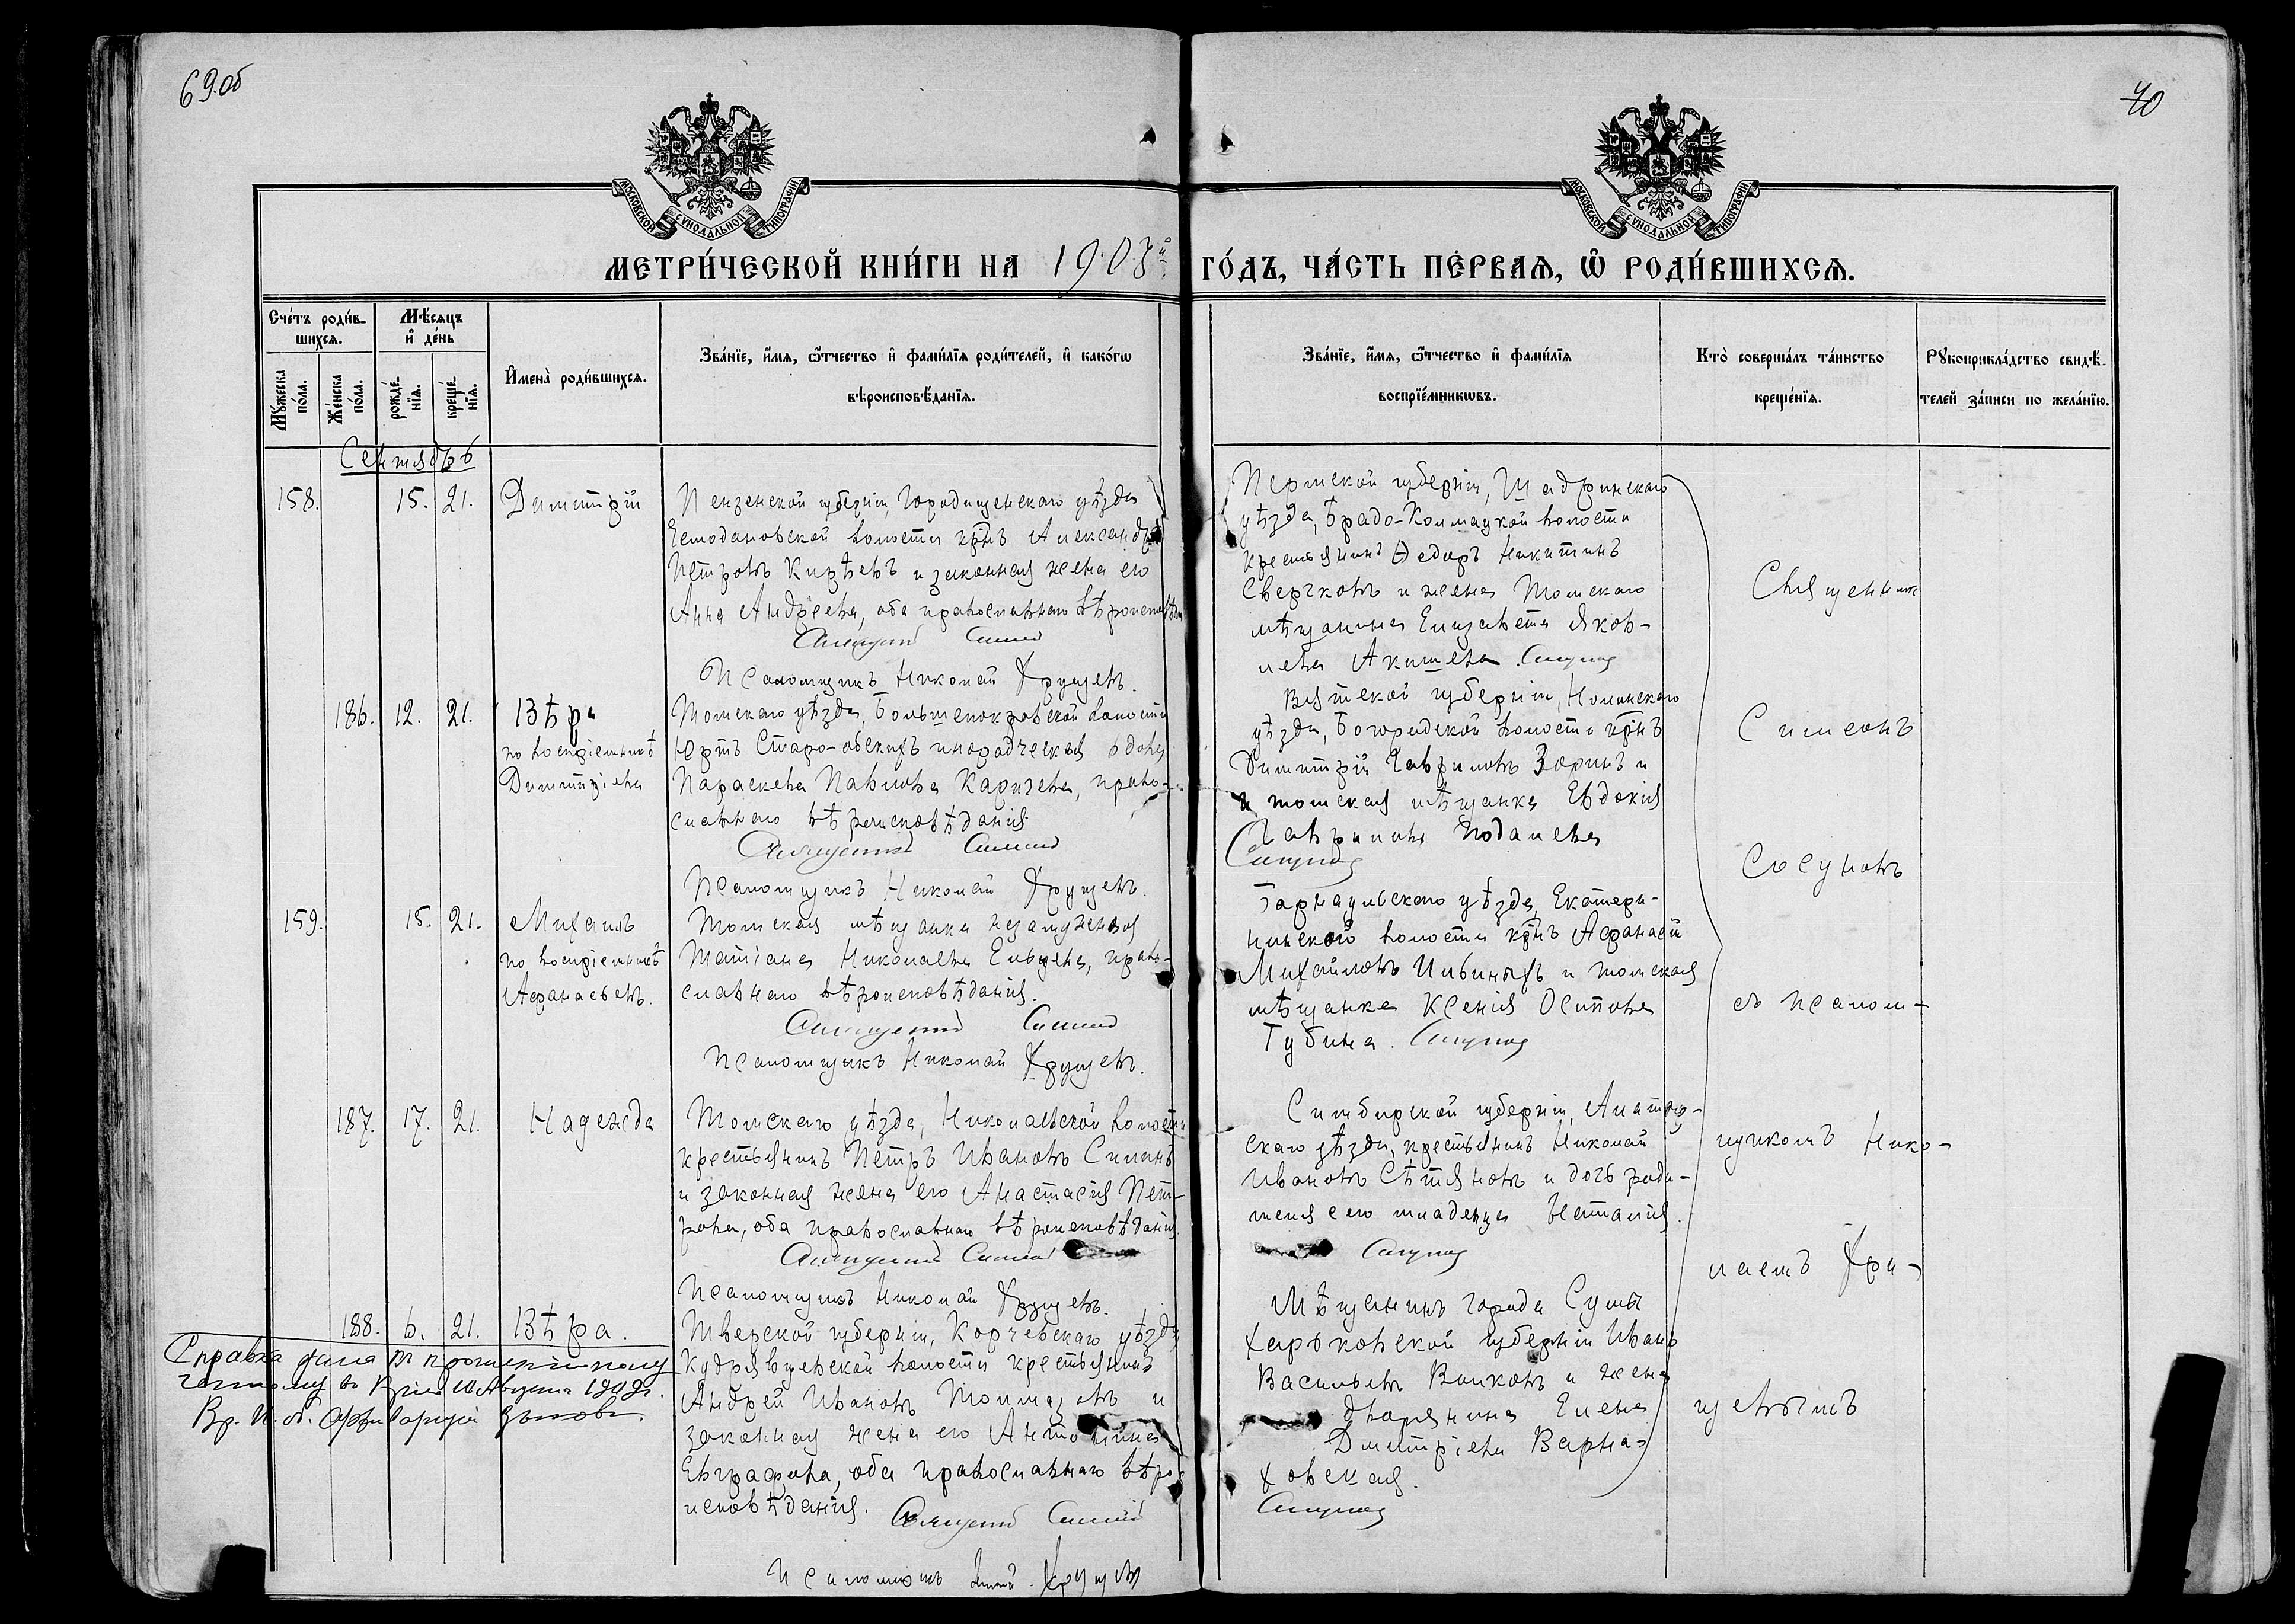 69 об
70
МОСКОВСКОЙ СѴНОДАЛЬНОЙ ТИПОГРАФІИ
МОСКОВСКОЙ СѴНОДАЛЬНОЙ ТИПОГРАФІИ
МЕТРИ́ЧЕСКОЙ КНИ́ГИ НА 1903й ГО́ДЪ, ЧА́СТЬ ПЕ́РВАѦ, Ѡ҆ РОДИ́ВШИХСѦ.
Сче́тъ роди́в-
шихсѧ.
Мѣ́сѧцъ
и҆ де́нь
Мꙋ́жеска
по́ла.
Же́нска
по́ла.
рожде́-
нїѧ.
креще́-
нїѧ.
И҆мена̀ роди́вшихсѧ.
Зва́нїе, и҆́мѧ, ѻ҆́тчество и҆ фами́лїѧ роди́телей, и҆ како́гѡ
вѣроисповѣ́данїѧ.
Зва́нїе, и҆́мѧ, ѻ҆́тчество и҆ фами́лїѧ
воспрїе́мникѡвъ.
Кто̀ соверша́лъ та́инство
креще́нїѧ.
Рꙋкоприкла́дство свидѣ́-
телей за́писи по жела́нїю.
Сентябрь
158. 15. 21. Димитрій
Пензенской губерніи Городищенскаго уѣзда
Чемодановской волости крнъ Александръ
Петровъ Кирѣевъ и законная жена его
Анна Андреева, оба православнаго вѣроисповѣд
Священникъ Симеонъ
Псаломщикъ Николай Хрущевъ.
Пермской губерніи, Шадринскаго
уѣзда, Брадо-Колмацкой волости
крестьянинъ Ѳедоръ Никитинъ
Сверчковъ и жена Томскаго
мѣщанина Елизавета Яков-
лева Акишева. Сосуновъ
186. 12. 21. Вѣра
по воспріемникѣ
Димитріева
Томскаго уѣзда, Большепокровской волости
Юртъ Старо-обскихъ инородческая вдова
Параскева Павлова Карычева, право-
славнаго вѣроисповѣданія
Священникъ Симеонъ
Псаломщикъ Николай Хрущевъ.
Вятской губерніи, Нолинскаго
уѣзда, Богородской волости крнъ
Димитрій Гавриловъ Зоринъ и
и томская мѣщанка Евдокія
Гаврилова Подалева
Сосуновъ
159. 15. 21. Михаилъ
по воспріемникѣ
Афанасьевъ.
Томская мѣщанка незамужняя
Татіана Николаева Ельцева, право-
славнаго вѣроисповѣданія.
Священникъ Симеонъ
Псаломщикъ Николай Хрущевъ.
Барнаульскаго уѣзда, Екатери-
нинской волости крнъ Афанасій
Михайловъ Ильиныхъ и томская
мѣщанка Ксенія Осипова
Губина. Сосуновъ
187. 17. 21. Надежда
Томскаго уѣзда, Николаевской волости
крестьянинъ Петръ Ивановъ Силинъ
и законная жена его Анастасія Пет-
рова, оба православнаго вѣроисповѣданія.
Священникъ Симеонъ
Псаломщикъ Николай Хрущевъ.
Симбирской губерніи, Алатыр-
скаго уѣзда, крестьянинъ Николай
Ивановъ Сѣтяновъ и дочь роди-
теля сего младенца Наталія.
Сосуновъ
188. 6. 21. Вѣра.
Тверской губерніи, Корчевскаго уѣзда
Кудрявцевской волости крестьянинъ
Андрей Ивановъ Толмачевъ и
законная жена его Антонина
Евграфова, оба православнаго вѣро-
исповѣданія. Священникъ Симеонъ
Псаломщикъ Хрущевъ
Мѣщанинъ города Сумы
Харьковской губерніи Иванъ
Васильевъ Волковъ и жена
дворянина Елена
Дмитріева Варна-
ховская.
Сосуновъ
Справка дана
Августа 1909г.
Архиваріуса
Священникъ
Симеонъ
Сосуновъ
съ псалом-
щикомъ Нико-
лаемъ Хру-
щевымъ